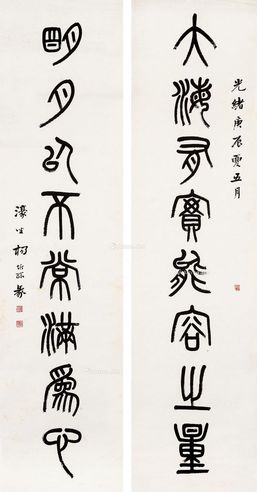 光緒庚辰夏五月
大海有實能容之量
明月以不常滿爲心
濠叟楊沂孫篆